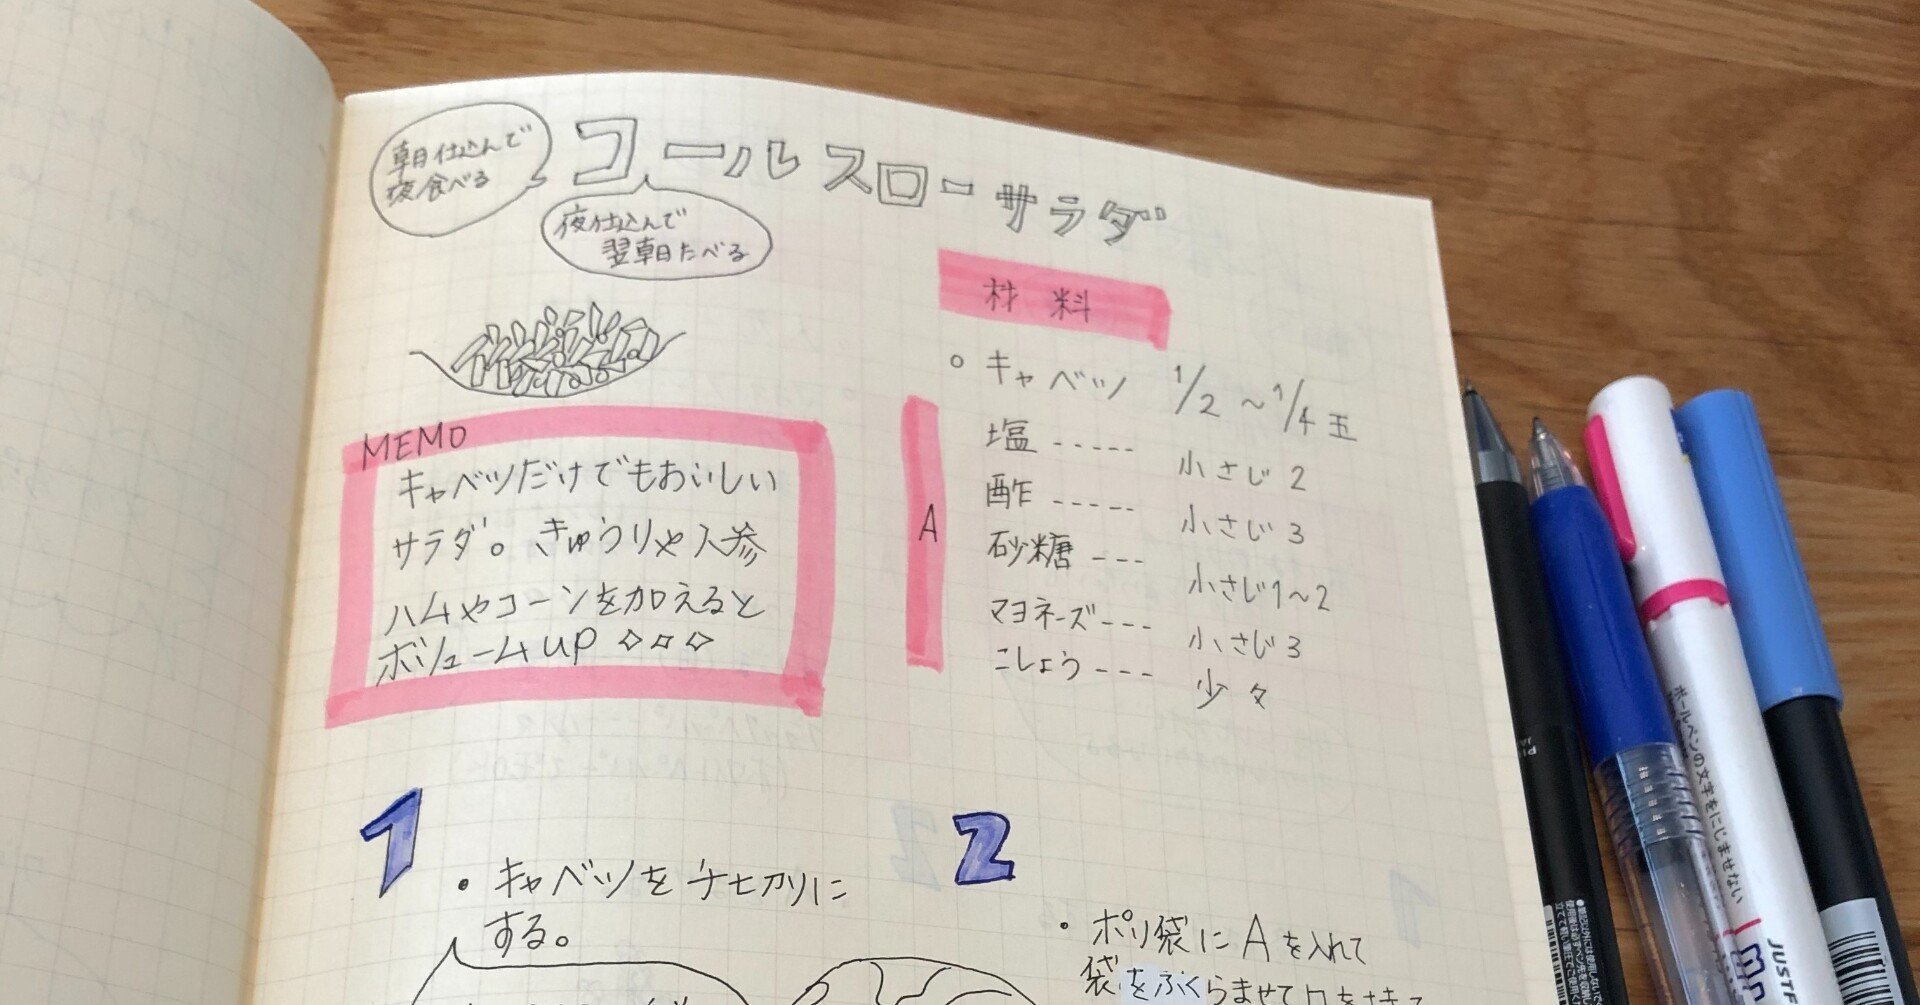 コールスローサラダ
朝仕込んで
夜食べる
夜仕込んで
翌朝たべる
材料
キャベツ 1/2 〜 1/4 玉
A
塩 ----- 小さじ 2
酢 ----- 小さじ 3
砂糖 --- 小さじ1〜2
マヨネーズ--- 小さじ 3
こしょう--- 少々
MEMO
キャベツだけでもおいしい
サラダ。きゅうりや人参
ハムやコーンを加えると
ボリュームup ◇◇◇
1
・キャベツを千切りに
する。
2
・ポリ袋に A を入れて
袋をふくらませて口を
ボールペンの文字をにじませない
JUSTF